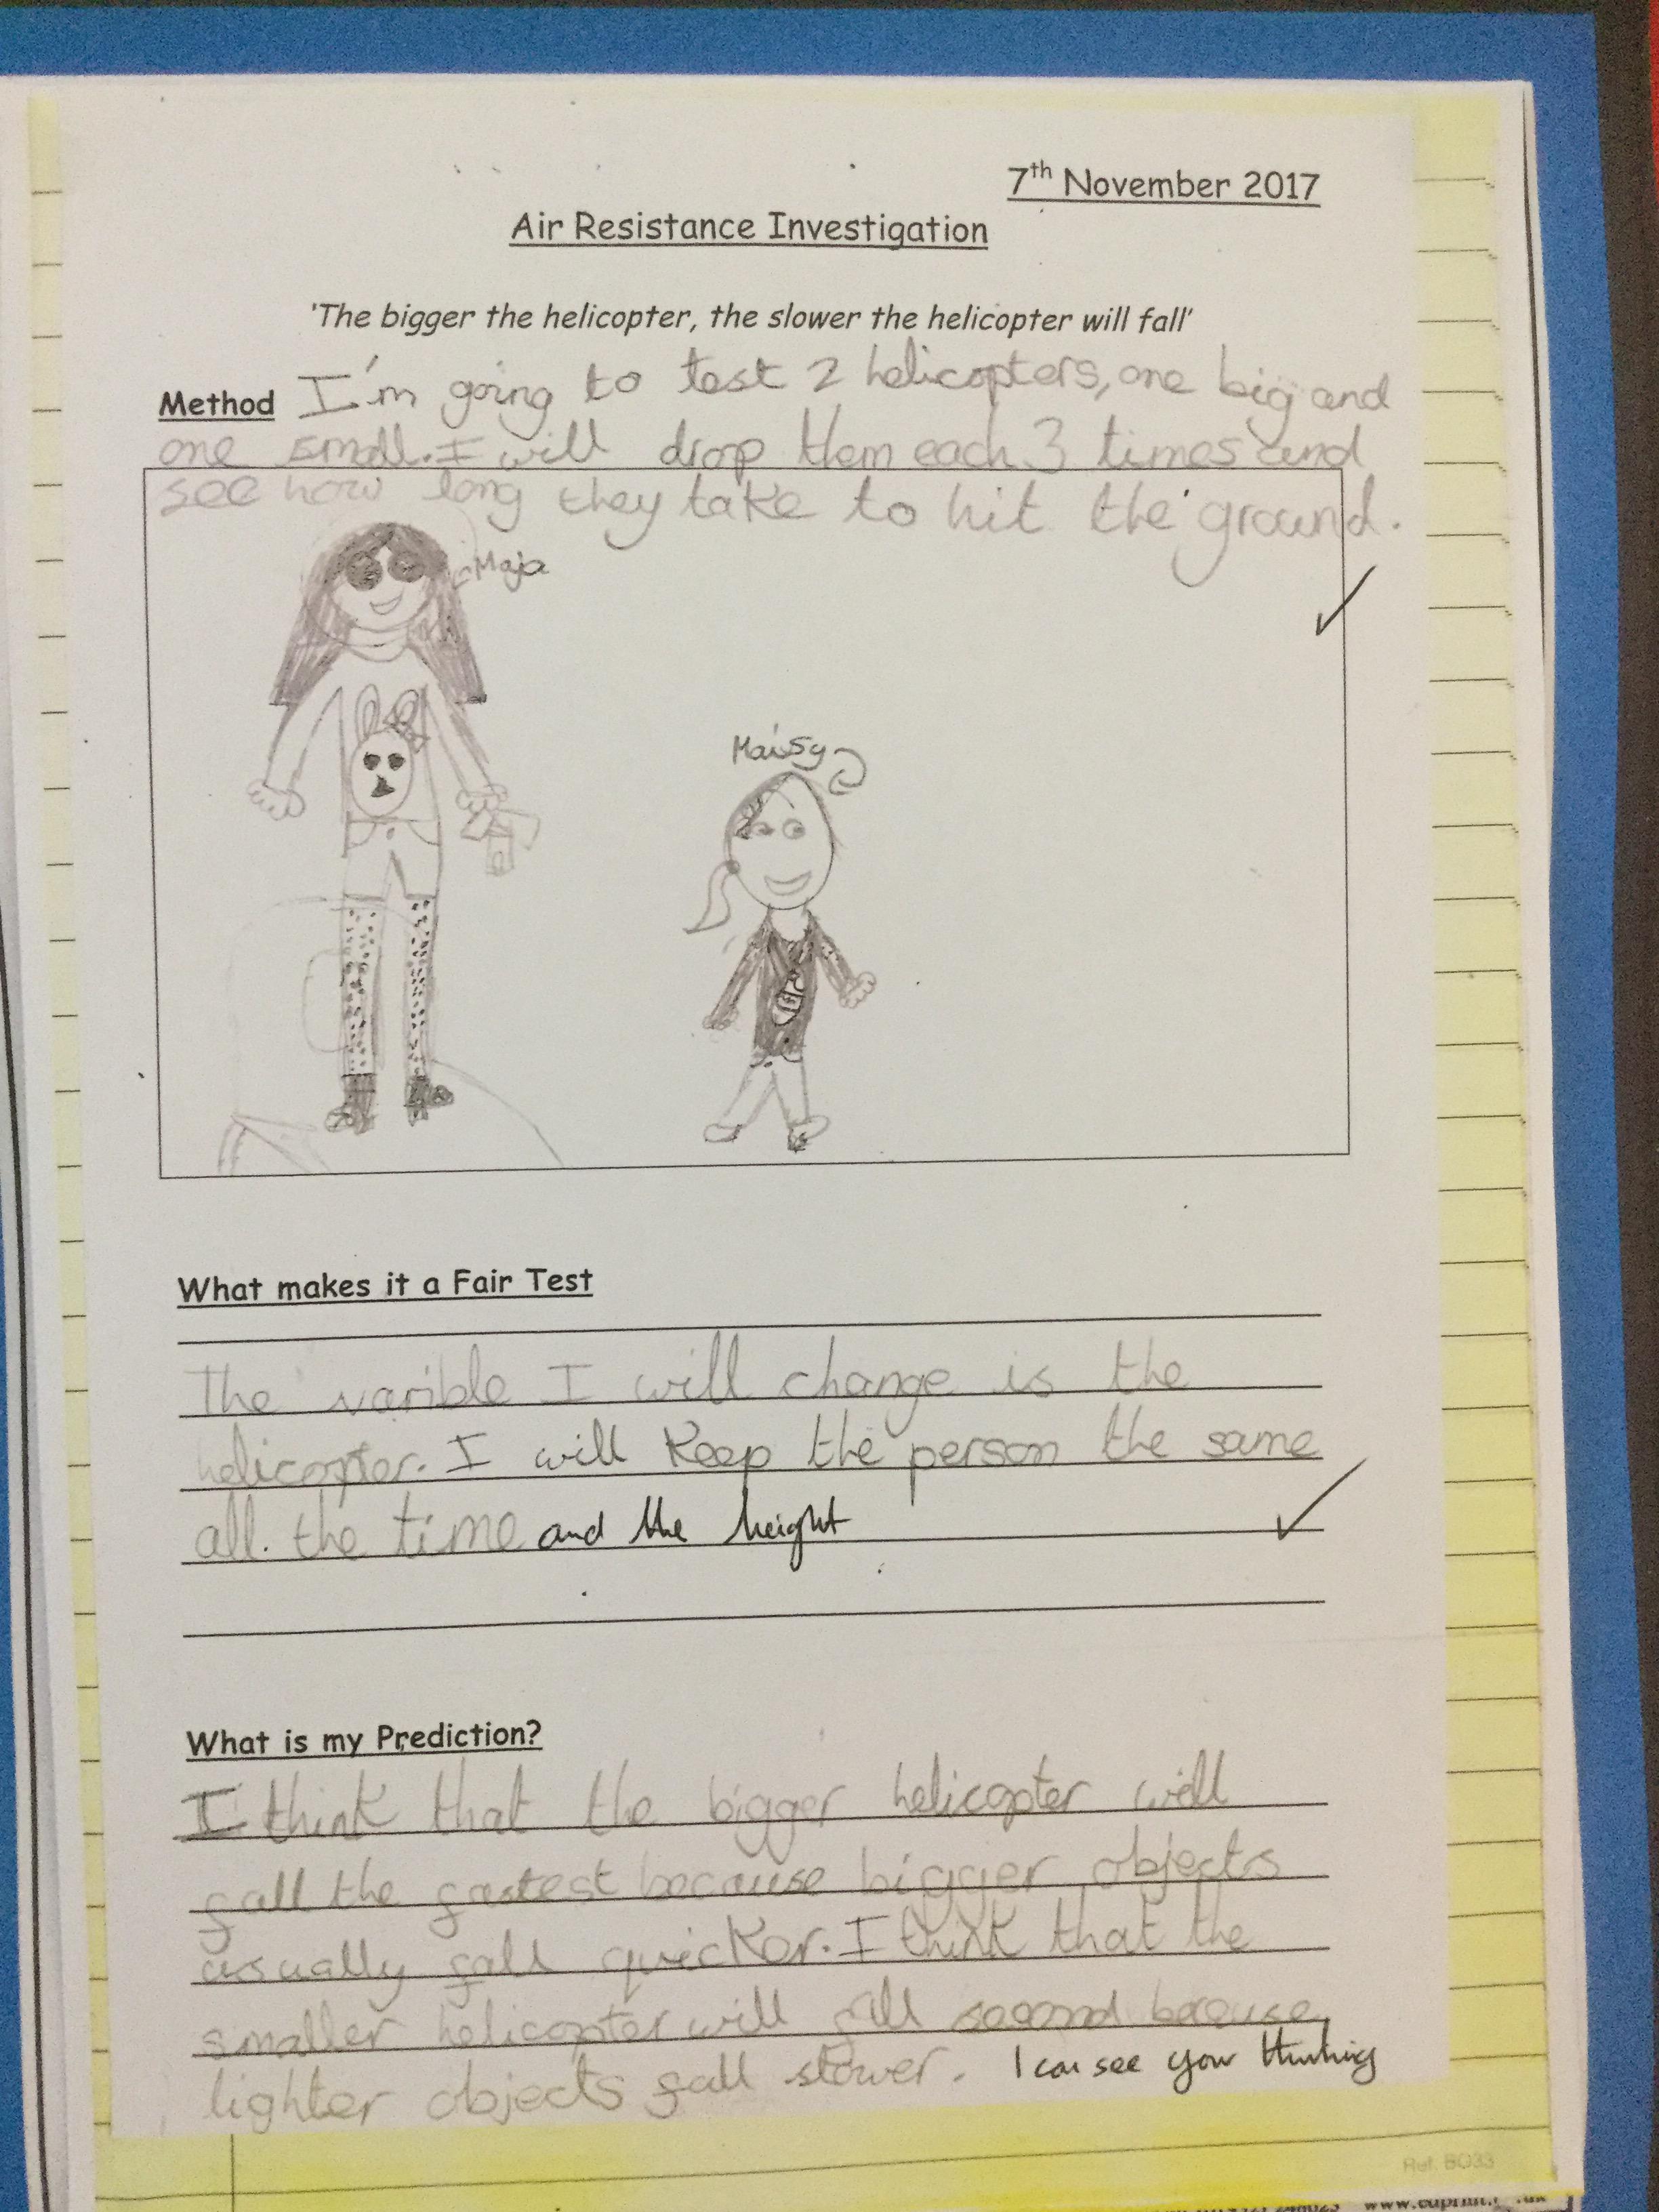 7th November 2017
Air Resistance Investigation
'The bigger the helicopter, the slower the helicopter will fall'
Method I'm going to test 2 helicopters, one big and
one small. I will drop them each 3 times and
see how long they take to hit the ground.
Maja
Maisy
What makes it a Fair Test
The varible I will change is the
helicopter. I will keep the person the same
all. the time and the height
What is my Prediction?
I think that the bigger helicopter will
fall the fastest because bigger objects
usually fall quicker. I think that the
smaller helicopter will fall second because
lighter objects fall slower. I can see your thinking
Ref. BO33